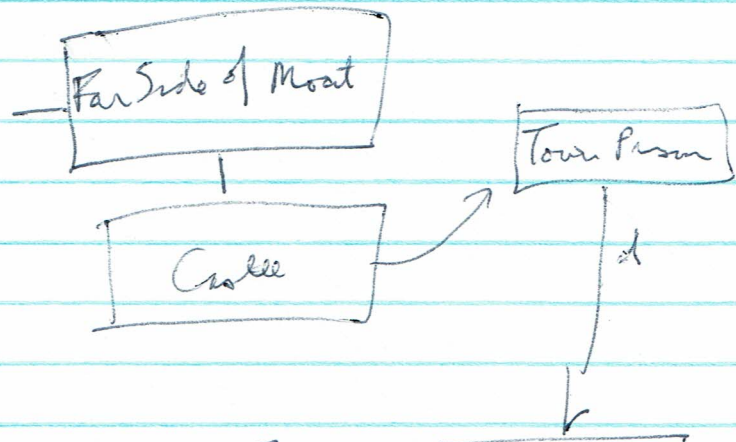 Far Side of Moat
Town Prison
Castle
d